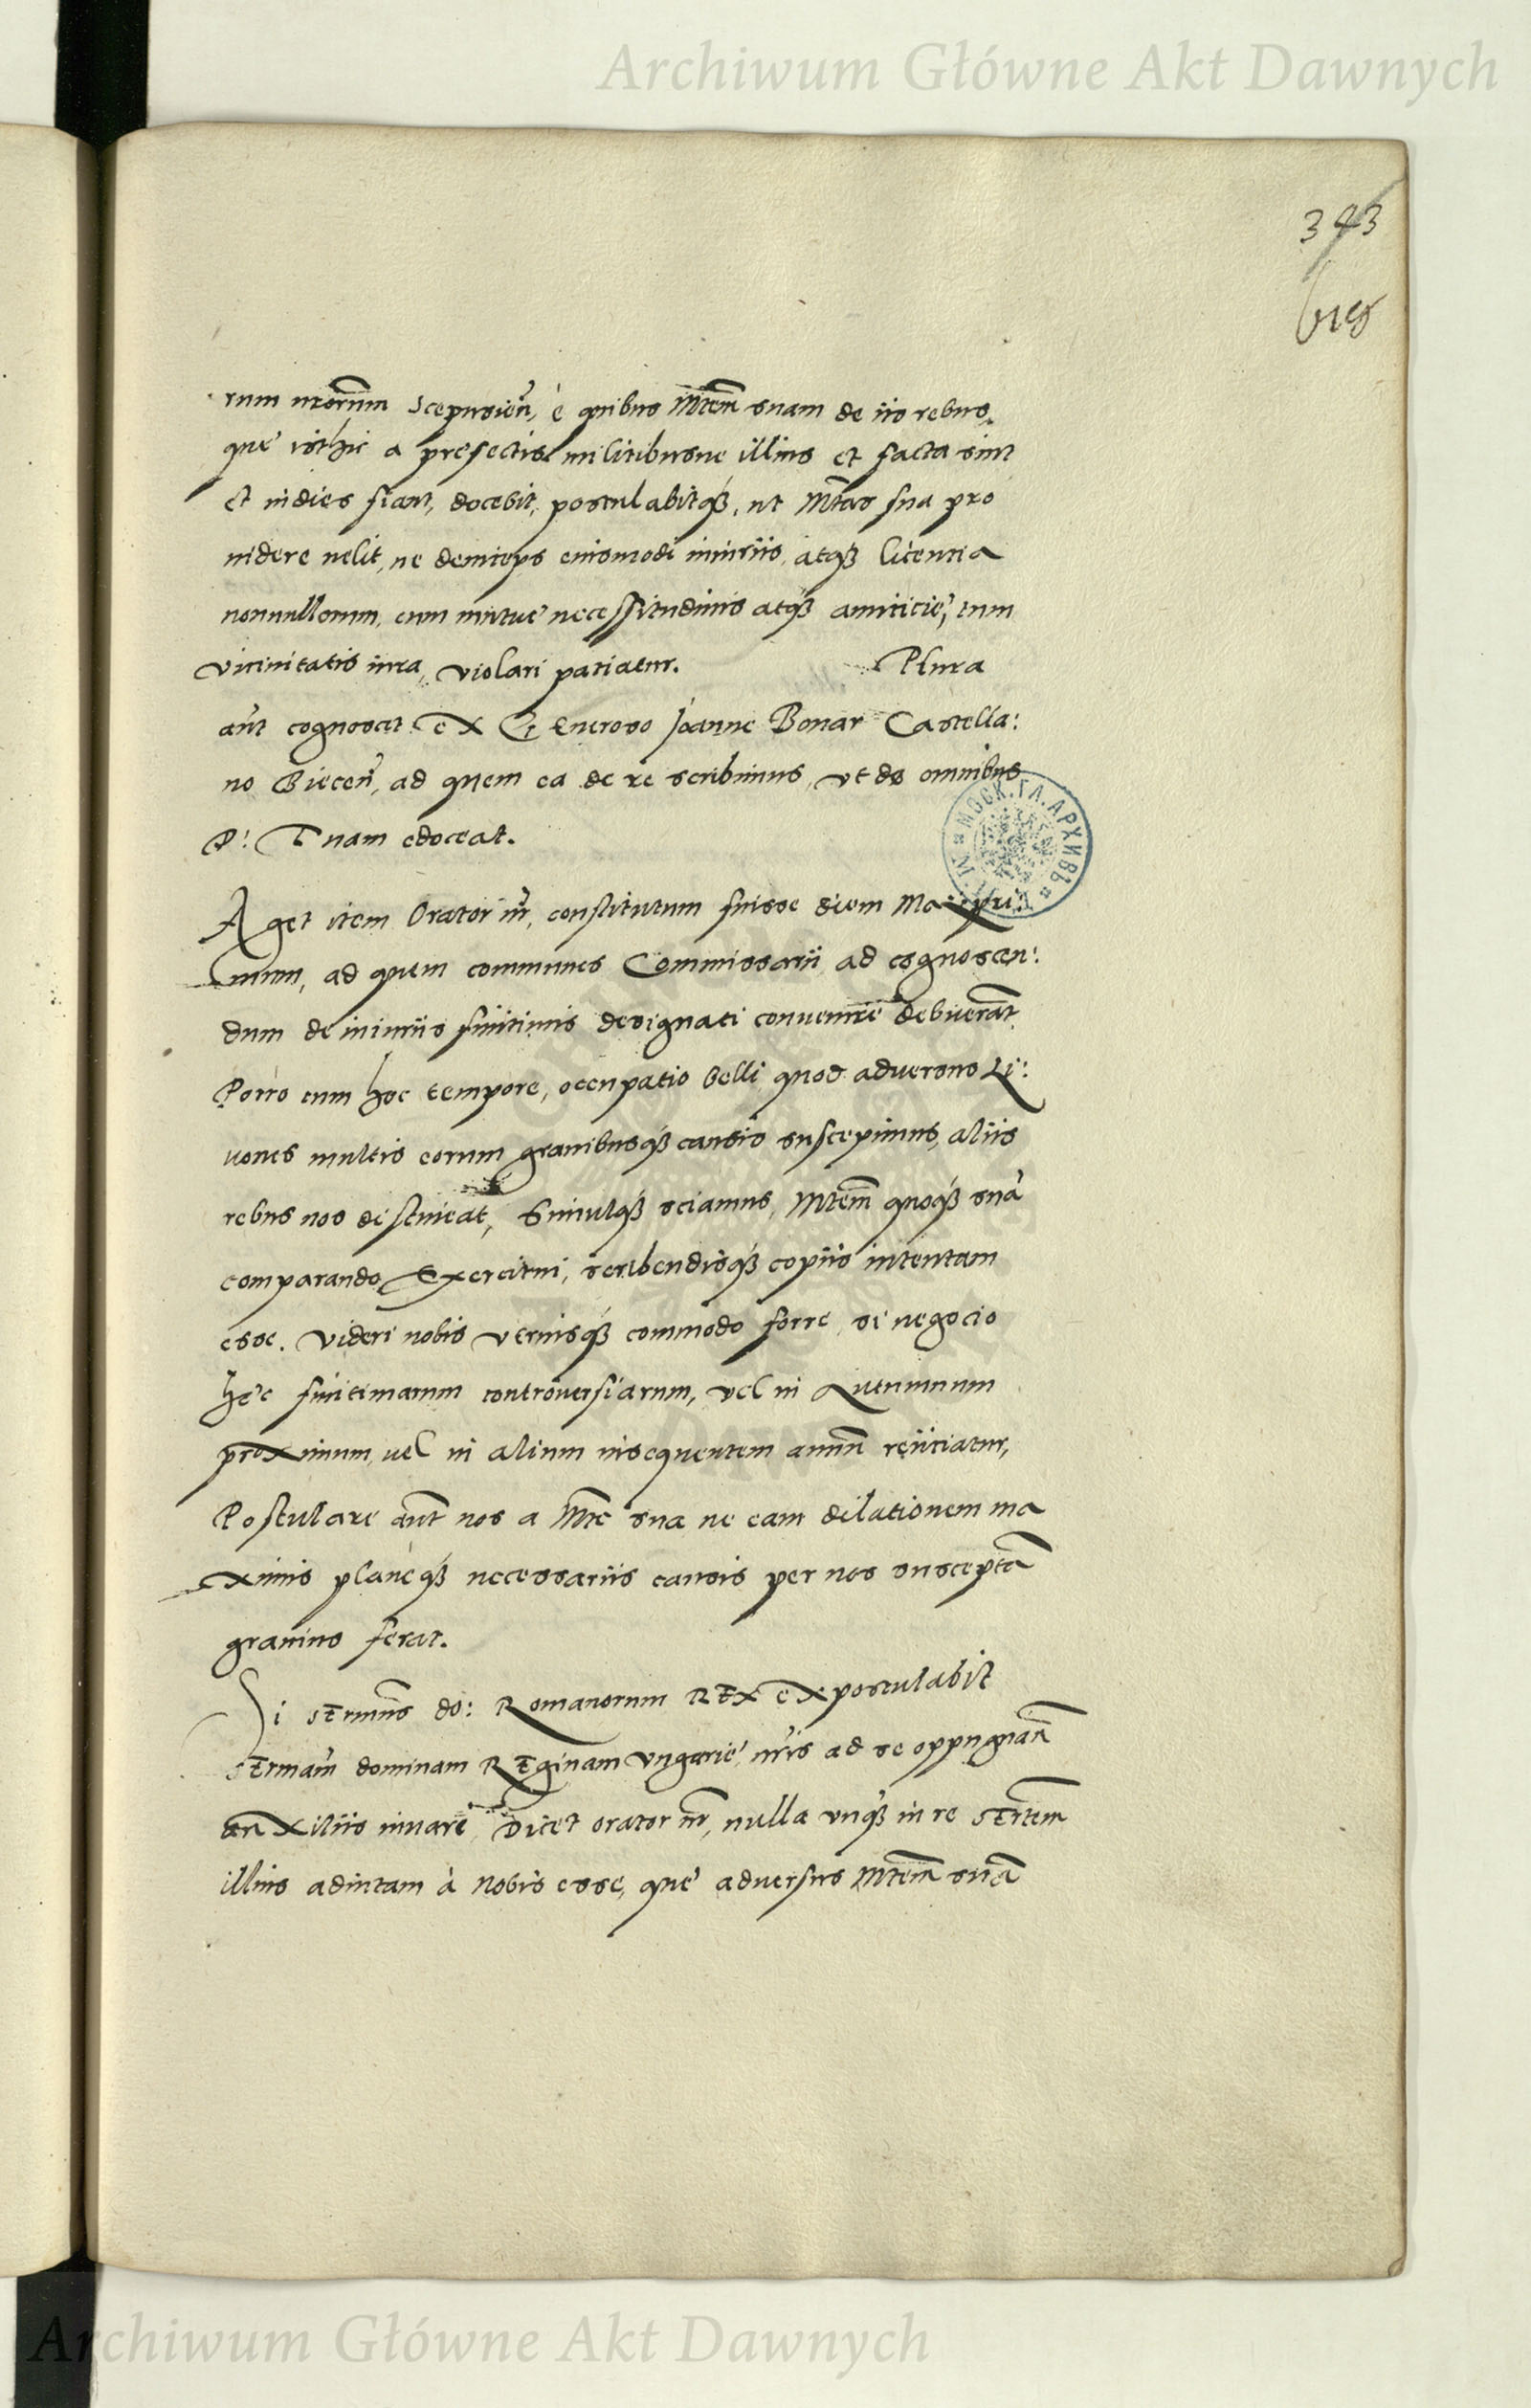 Archiwum Główne Akt Dawnych
343
rum nrorum Scepusien, è quibus Mtem suam de iis rebus,
que isthic a prefectis militibusue illius et facta sint
et indies fiant, docebit, postulabitqȝ, ut Mtas sua pro
uidere uelit, ne deinceps eiusmodi iniuriis, atqȝ licentia
nonnullorum, cum mutue necessitudinis atqȝ amiticie, tum
vicinitatis iura, violari patiatur. Plura
aut cognoscet ex Generoso Joanne Bonar Castella:
no Biecen, ad quem ea de re scribimus, ut de omnibus
P: Tuam edoceat.
МОСК. ГЛ. АРХИВЪ
Aget item Orator nr, constitutum fuisse diem Maii pri:
mum, ad quem communes Commissarii ad cognoscen:
dum de iniuriis finitimis designati conuenire debuerant.
Porro cum hoc tempore, occupatio belli quod aduersus Li:
uones multis eorum grauibusqȝ causis suscepimus, aliis
rebus nos distineat, Simulqȝ sciamus, Mtem quoqȝ sua
comparando Exercitui, scribendisqȝ copiis intentam
esse. Videri nobis vtruisqȝ commodo forre, si negocio
hec finitimarum controuersiarum, vel in Autumnum
proximum, uel in alium insequentem annum reiiciatur,
Postulare aut nos a Mte sua ne eam dilationem ma
ximis planeqȝ necessariis causis per nos suscepta
grauius ferat.
Si sErmus do: Romanorum REx expostulabit
sErmam dominam REginam Vngarie, nris ad se oppugnan
auxiliis iuuare, Dicet orator nr, nulla unqȝ in re sErtem
illius adiutam à nobis esse, que aduersus Mtem sua
Archiwum Główne Akt Dawnych